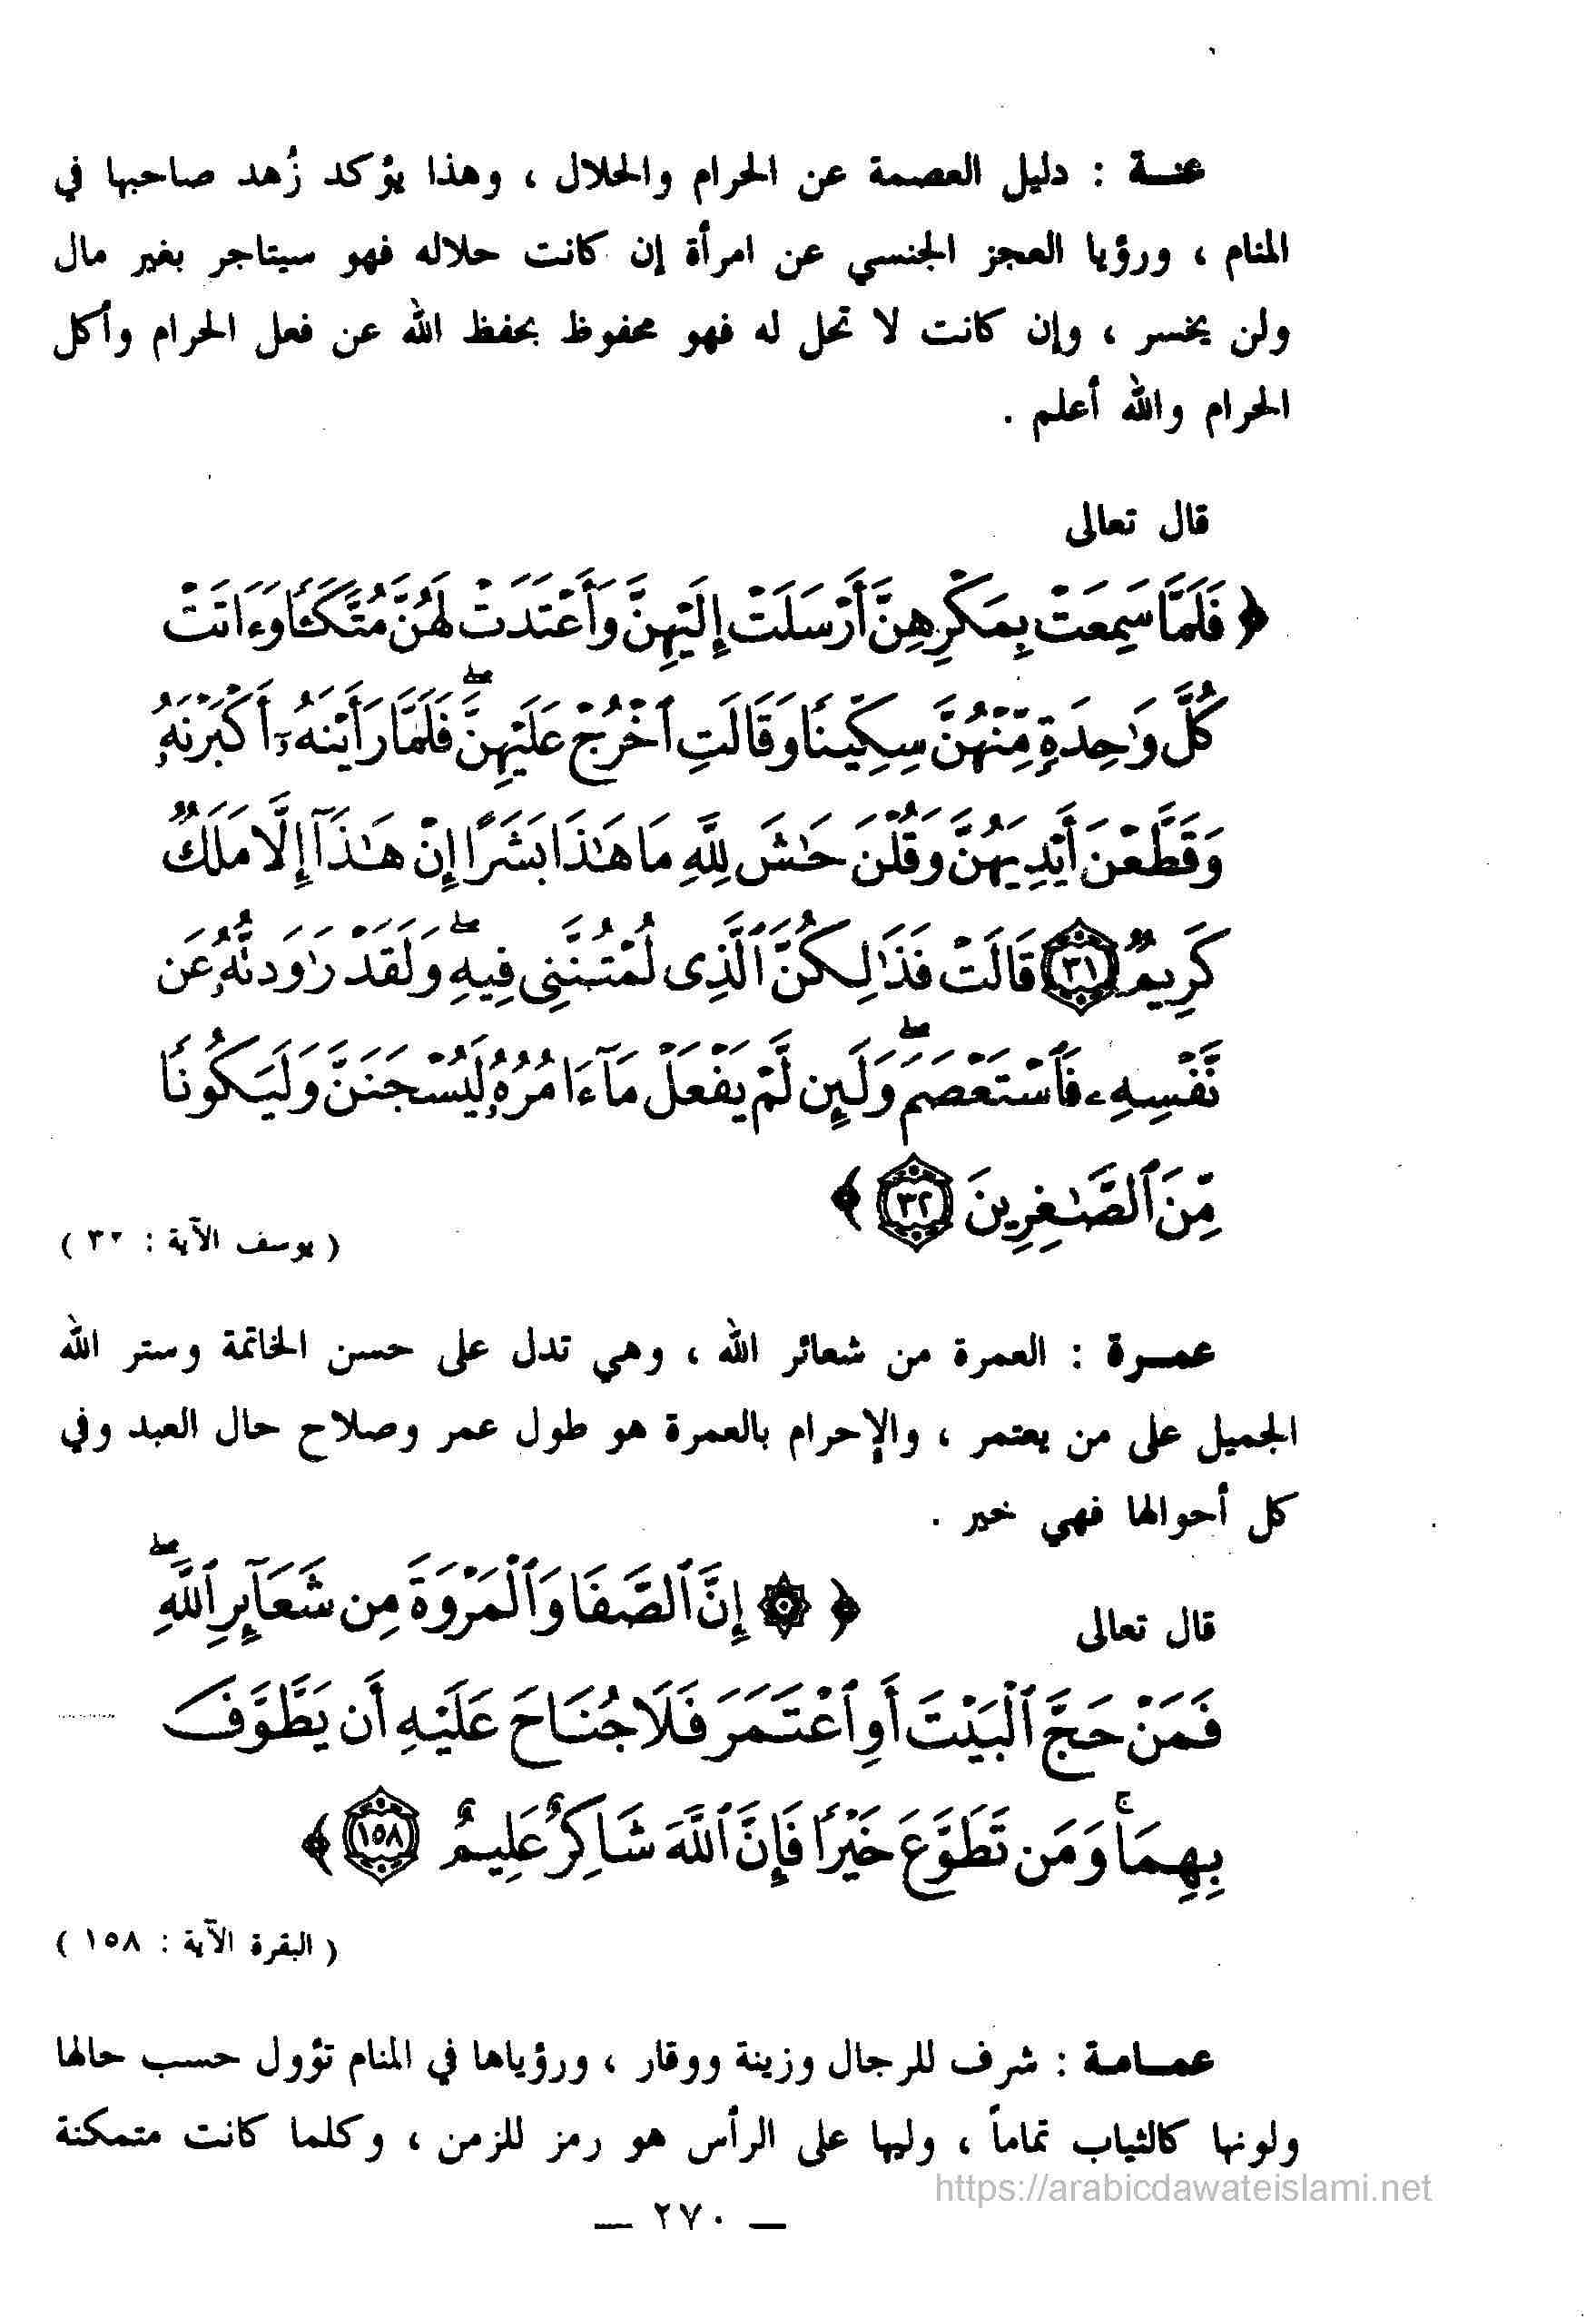 عنـــة : دليل العصمة عن الحرام والحلال ، وهذا يؤكد زُهد صاحبها في
المنام ، ورؤيا العجز الجنسي عن امرأة إن كانت حلاله فهو سيتاجر بغير مال
ولن يخسر ، وإن كانت لا تحل له فهو محفوظ بحفظ الله عن فعل الحرام وأكل
الحرام والله أعلم .
قال تعالى
﴿ فَلَمَّا سَمِعَتْ بِمَكْرِهِنَّ أَرْسَلَتْ إِلَيْهِنَّ وَأَعْتَدَتْ لَهُنَّ مُتَّكَـًٔا وَءَاتَتْ
كُلَّ وَٰحِدَةٍ مِّنْهُنَّ سِكِّينًا وَقَالَتِ ٱخْرُجْ عَلَيْهِنَّ ۖ فَلَمَّا رَأَيْنَهُۥٓ أَكْبَرْنَهُۥ
وَقَطَّعْنَ أَيْدِيَهُنَّ وَقُلْنَ حَٰشَ لِلَّهِ مَا هَٰذَا بَشَرًا إِنْ هَٰذَآ إِلَّا مَلَكٌ
كَرِيمٌ ۝٣١ قَالَتْ فَذَٰلِكُنَّ ٱلَّذِى لُمْتُنَّنِى فِيهِ ۖ وَلَقَدْ رَٰوَدتُّهُۥ عَن
نَّفْسِهِۦ فَٱسْتَعْصَمَ ۖ وَلَئِن لَّمْ يَفْعَلْ مَآ ءَامُرُهُۥ لَيُسْجَنَنَّ وَلَيَكُونًا
مِّنَ ٱلصَّٰغِرِينَ ۝٣٢ ﴾
( يوسف الآية : ٣٢ )
عمـــرة : العمرة من شعائر الله ، وهي تدل على حسن الخاتمة وستر الله
الجميل على من يعتمر ، والإحرام بالعمرة هو طول عمر وصلاح حال العبد وفي
كل أحوالها فهي خير .
قال تعالى ﴿ ۞ إِنَّ ٱلصَّفَا وَٱلْمَرْوَةَ مِن شَعَآئِرِ ٱللَّهِ ۖ
فَمَنْ حَجَّ ٱلْبَيْتَ أَوِ ٱعْتَمَرَ فَلَا جُنَاحَ عَلَيْهِ أَن يَطَّوَّفَ
بِهِمَا ۚ وَمَن تَطَوَّعَ خَيْرًا فَإِنَّ ٱللَّهَ شَاكِرٌ عَلِيمٌ ۝١٥٨ ﴾
( البقرة الآية : ١٥٨ )
عمـــامـة : شرف للرجال وزينة ووقار ، ورؤياها في المنام تؤول حسب حالها
ولونها كالثياب تماماً ، وليها على الرأس هو رمز للزمن ، وكلما كانت متمكنة
https://arabicdawateislami.net
— ٢٧٠ —